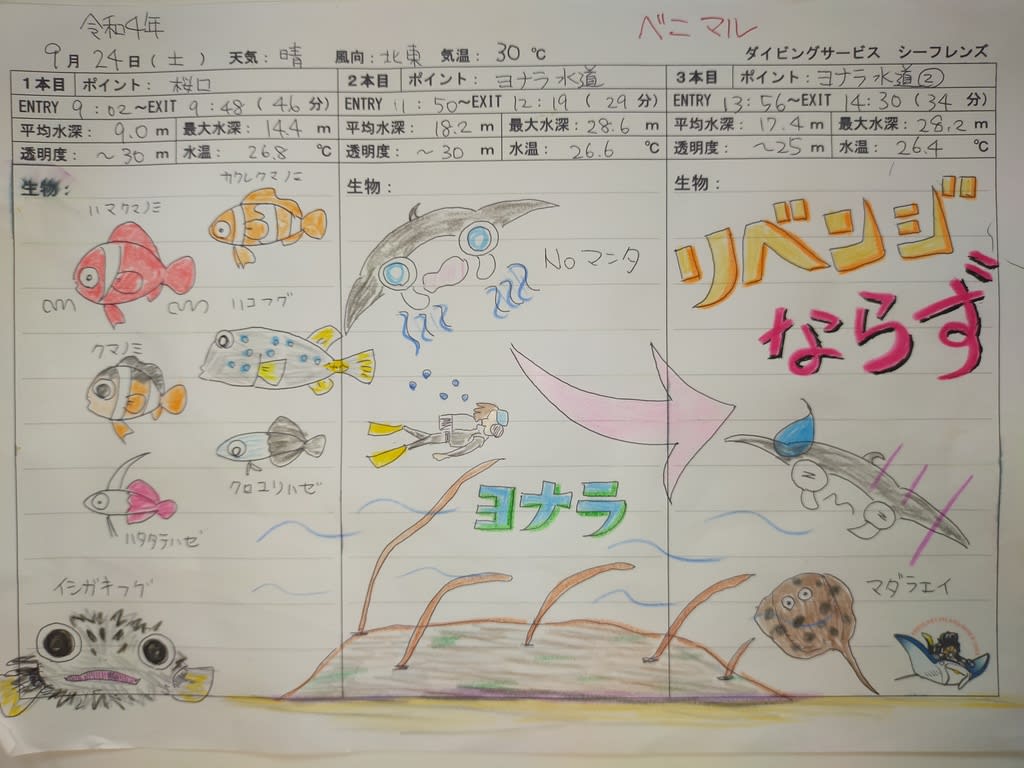 令和4年
ベニマル
9月24日(土) 天気:晴 風向:北東 気温:30℃ ダイビングサービス シーフレンズ
1本目 ポイント:桜口
ENTRY 9:02〜EXIT 9:48(46分)
平均水深:9.0m 最大水深:14.4m
透明度:〜30m 水温:26.8℃
生物:
カクレクマノミ
ハマクマノミ
ハコフグ
クマノミ
クロユリハゼ
ハタタテハゼ
イシガキフグ
2本目 ポイント:ヨナラ水道
ENTRY 11:50〜EXIT 12:19(29分)
平均水深:18.2m 最大水深:28.6m
透明度:〜30m 水温:26.6℃
生物:
Noマンタ
ヨナラ
3本目 ポイント:ヨナラ水道②
ENTRY 13:56〜EXIT 14:30(34分)
平均水深:17.4m 最大水深:28.2m
透明度:〜25m 水温:26.4℃
生物:
リベンジ
ならず
マダラエイ